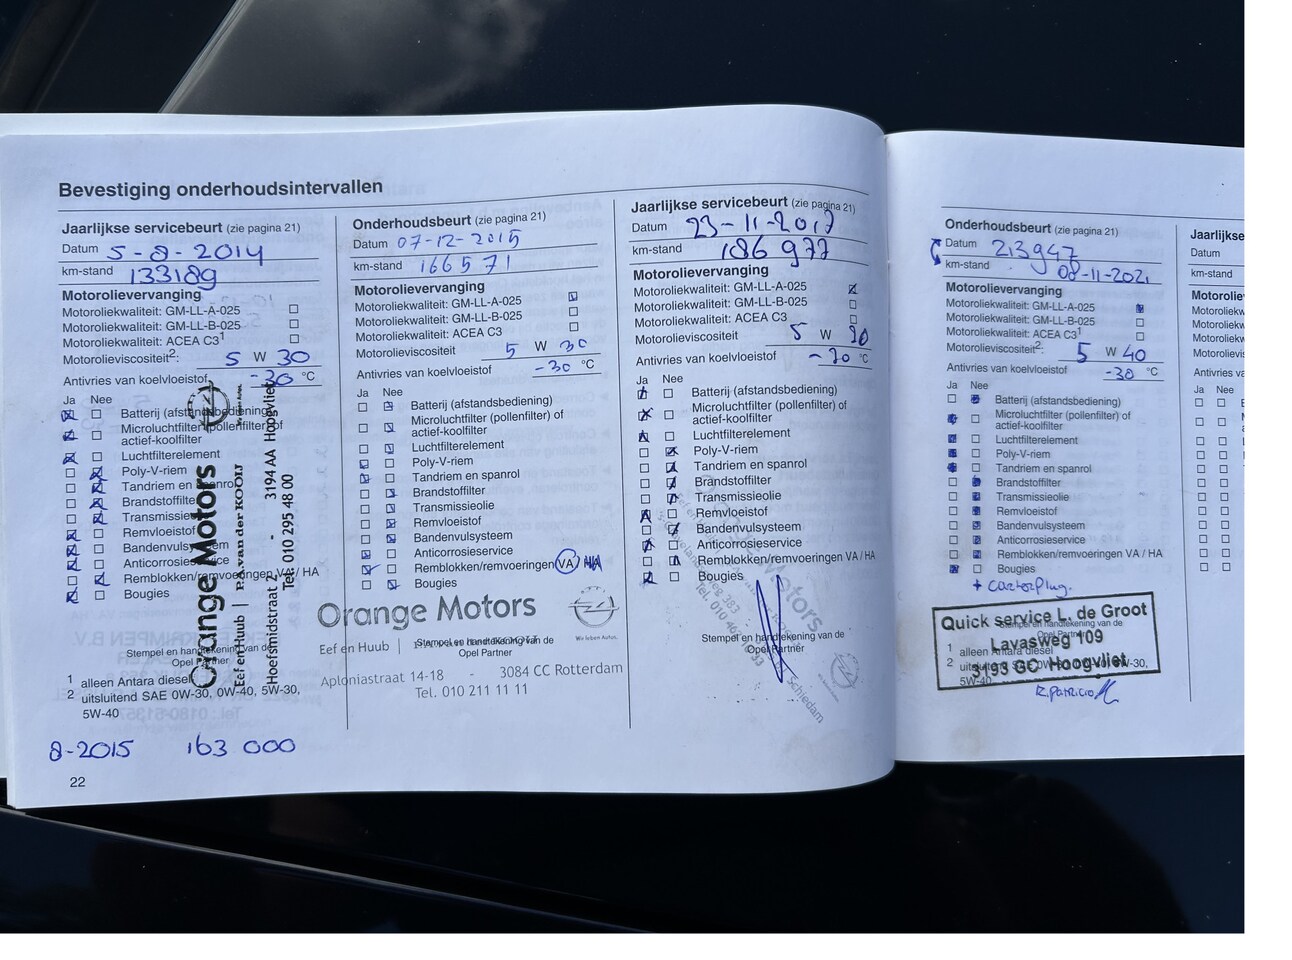 Bevestiging onderhoudsintervallen
Jaarlijkse servicebeurt (zie pagina 21)
Datum 5-8-2014
km-stand 133189
Motorolievervanging
Motoroliekwaliteit: GM-LL-A-025
Motoroliekwaliteit: GM-LL-B-025
Motoroliekwaliteit: ACEA C3¹
Motorolieviscositeit²: 5 W 30
Antivries van koelvloeistof -30 °C
Ja Nee
Batterij (afstandsbediening)
Microluchtfilter (pollenfilter) of
actief-koolfilter
Luchtfilterelement
Poly-V-riem
Tandriem en spanrol
Brandstoffilter
Transmissie
Remvloeistof
Bandenvulsysteem
Anticorrosieservice
Remblokken/remvoeringen VA / HA
Bougies
Orange Motors
Eef en Huub | P.A. van der KOOIJ
Hoefsmidstraat 2 - 3194 AA Hoogvliet
Tel. 010 295 48 00
Stempel en handtekening van de
Opel Partner
1 alleen Antara diesel
2 uitsluitend SAE 0W-30, 0W-40, 5W-30,
5W-40
8-2015 163 000
22
Onderhoudsbeurt (zie pagina 21)
Datum 07-12-2015
km-stand 166571
Motorolievervanging
Motoroliekwaliteit: GM-LL-A-025
Motoroliekwaliteit: GM-LL-B-025
Motoroliekwaliteit: ACEA C3
Motorolieviscositeit 5 W 30
Antivries van koelvloeistof -30 °C
Ja Nee
Batterij (afstandsbediening)
Microluchtfilter (pollenfilter) of
actief-koolfilter
Luchtfilterelement
Poly-V-riem
Tandriem en spanrol
Brandstoffilter
Transmissieolie
Remvloeistof
Bandenvulsysteem
Anticorrosieservice
Remblokken/remvoeringen VA HA
Bougies
Orange Motors
Wij leven Autos.
Eef en Huub |
Stempel en handtekening van de
Opel Partner
Aploniastraat 14-18 - 3084 CC Rotterdam
Tel. 010 211 11 11
Jaarlijkse servicebeurt (zie pagina 21)
Datum 23-11-2017
km-stand 186977
Motorolievervanging
Motoroliekwaliteit: GM-LL-A-025
Motoroliekwaliteit: GM-LL-B-025
Motoroliekwaliteit: ACEA C3
Motorolieviscositeit 5 W 30
Antivries van koelvloeistof -30 °C
Ja Nee
Batterij (afstandsbediening)
Microluchtfilter (pollenfilter) of
actief-koolfilter
Luchtfilterelement
Poly-V-riem
Tandriem en spanrol
Brandstoffilter
Transmissieolie
Remvloeistof
Bandenvulsysteem
Anticorrosieservice
Remblokken/remvoeringen VA / HA
Bougies
Motors
383
Schiedam
Tel. 010
Stempel en handtekening van de
Opel Partner
Onderhoudsbeurt (zie pagina 21)
Datum 213947
km-stand 08-11-2021
Motorolievervanging
Motoroliekwaliteit: GM-LL-A-025
Motoroliekwaliteit: GM-LL-B-025
Motoroliekwaliteit: ACEA C3¹
Motorolieviscositeit²: 5 W 40
Antivries van koelvloeistof -30 °C
Ja Nee
Batterij (afstandsbediening)
Microluchtfilter (pollenfilter) of
actief-koolfilter
Luchtfilterelement
Poly-V-riem
Tandriem en spanrol
Brandstoffilter
Transmissieolie
Remvloeistof
Bandenvulsysteem
Anticorrosieservice
Remblokken/remvoeringen VA / HA
Bougies
+ carterplug.
Quick service L. de Groot
Lavasweg 109
3193 GC Hoogvliet
Stempel en handtekening van de
Opel Partner
1 alleen Antara diesel
2 uitsluitend SAE 0W-30, 0W-40, 5W-30,
5W-40
R. Patricio
Jaarlijkse
Datum
km-stand
Motorolie
Motoroliek
Motoroliek
Motoroliek
Motorolievis
Antivries va
Ja Nee